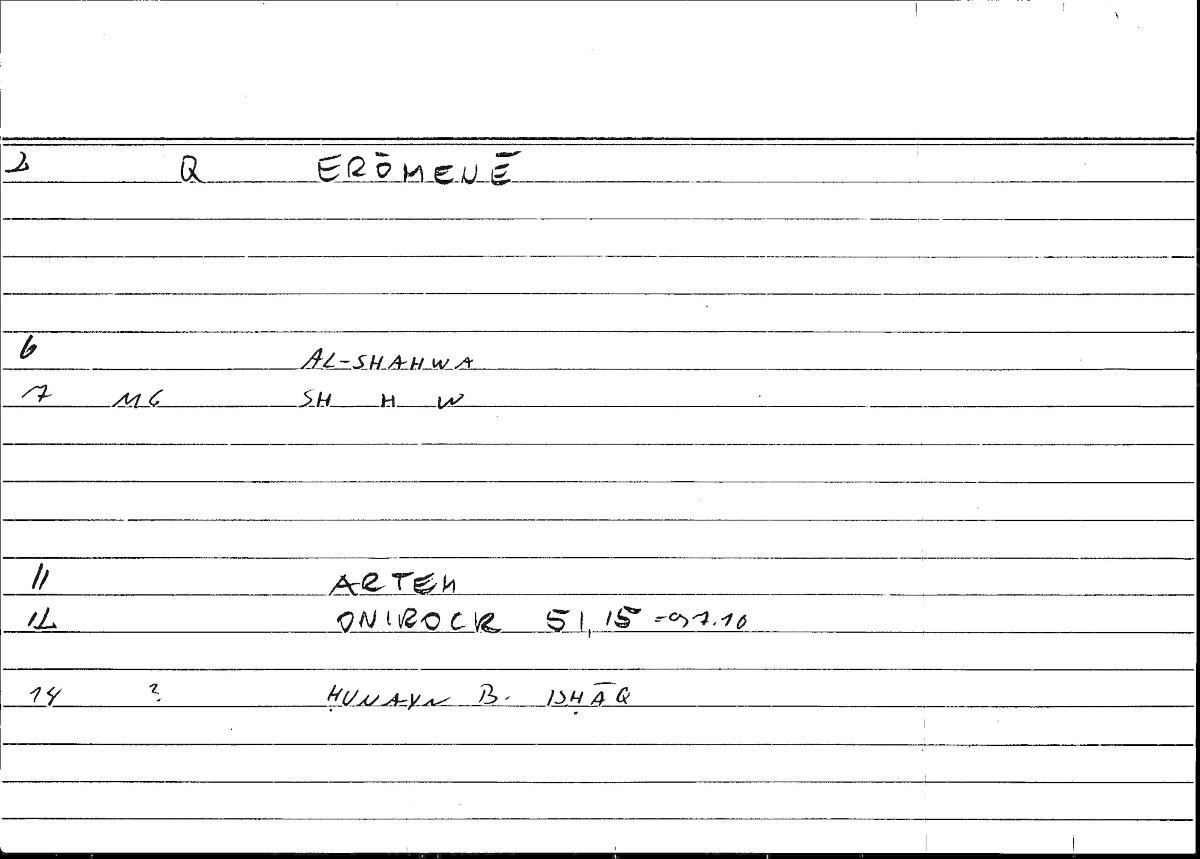 2 Q ERŌMENĒ
6 AL-SHAHWA
7 MG SH H W
11 ARTEM
12 ONIROCR 51,15 = 97.10
14 ? ḤUNAYN B. ISḤĀQ